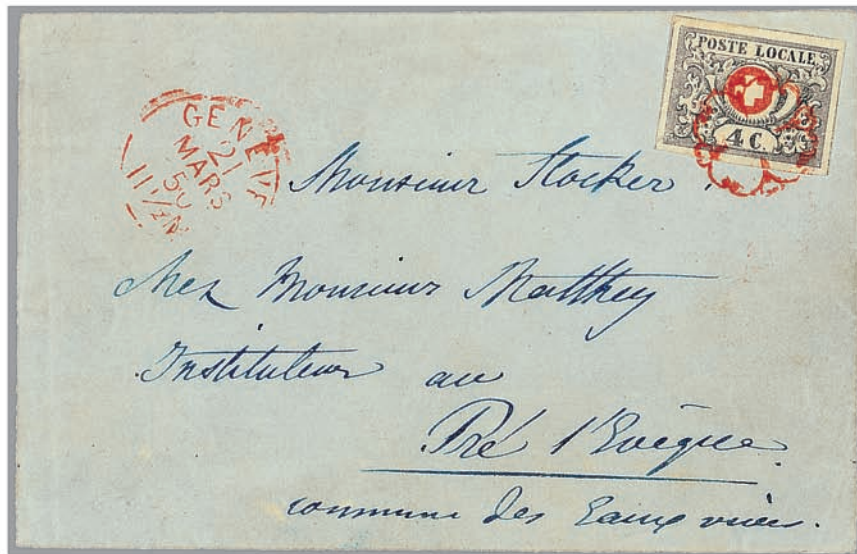 POSTE LOCALE
4 C.
GENEVE
21
MARS
50
11 ½ M
Monsieur Stocker,
chez Monsieur Matthey
Instituteur au
Pré l'Evêque.
commune des Eaux vives.